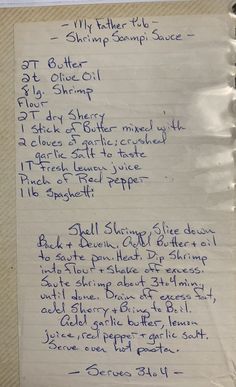 - My Father Pub -
- Shrimp Scampi Sauce -
2T Butter
2t Olive Oil
8 lg. Shrimp
Flour
2T dry Sherry
1 Stick of Butter mixed with
2 cloves of garlic; crushed
garlic Salt to taste
1T Fresh Lemon juice
Pinch of Red pepper
1 lb Spaghetti
Shell Shrimp, Slice down
Back + Devein. Add Butter + oil
to Saute pan. Heat. Dip Shrimp
into Flour + Shake off excess.
Saute shrimp about 3 to 4 min,
until done. Drain off excess fat,
add Sherry + Bring to Boil.
Add garlic butter, lemon
juice, red pepper + garlic salt.
Serve over hot pasta.
- Serves 3 to 4 -